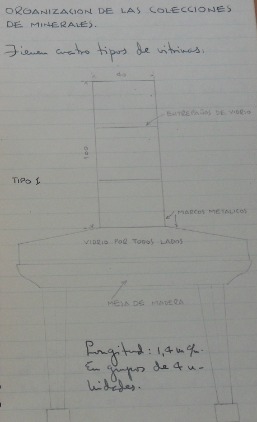 ORGANIZACION DE LAS COLECCIONES
DE MINERALES.
Tienen cuatro tipos de vitrinas.
40
ENTREPAÑOS DE VIDRIO
100
TIPO I
MARCOS METALICOS
VIDRIO POR TODOS LADOS
MESA DE MADERA
Longitud: 1,4 m
En grupos de 4 u-
nidades.